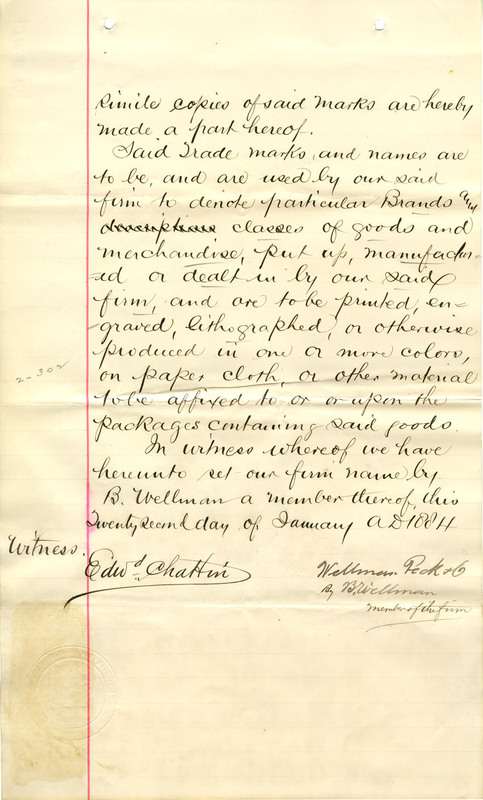 simile copies of said marks are hereby
made a part hereof.
Said Trade marks, and names are
to be, and are used by our said
firm to denote particular Brands and
descriptions classes of goods and
merchandise, put up, manufactur-
ed or dealt in by our said
firm, and are to be printed, en=
graved, lithographed, or otherwise
produced in one or more colors,
on paper cloth, or other material
to be affixed to or or upon the
packages containing said goods.
In witness whereof we have
hereunto set our firm name by
B. Wellman a member thereof, this
Twenty second day of January A D 1884
Witness.
Edwd Chattin
Wellman Peck & Co
By B. Wellman
member of the firm
2-302